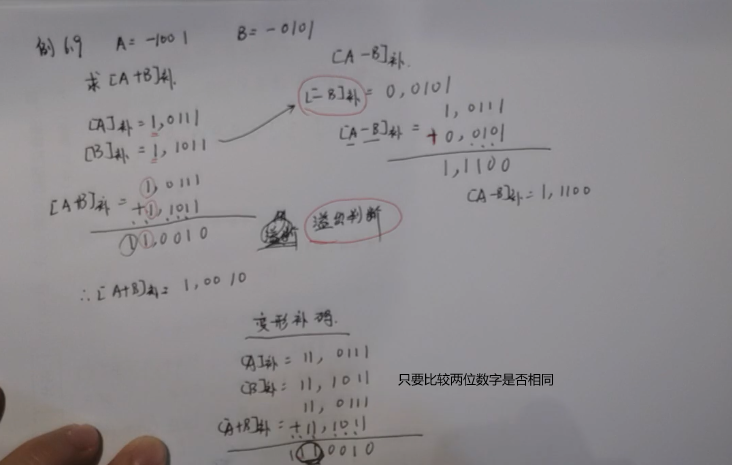 例 6.9 A = -1001 B = -0101
求 [A+B]补.
[A]补 = 1,0111
[B]补 = 1,1011
1,0111
[A+B]补 = +1,1011
11,0010
∴ [A+B]补 = 1,0010
[A-B]补.
[-B]补 = 0,0101
1,0111
[A-B]补 = +0,0101
1,1100
[A-B]补 = 1,1100
溢出判断
变形补码.
[A]补 = 11,0111
[B]补 = 11,1011
11,0111
[A+B]补 = +11,1011
1110010
只要比较两位数字是否相同